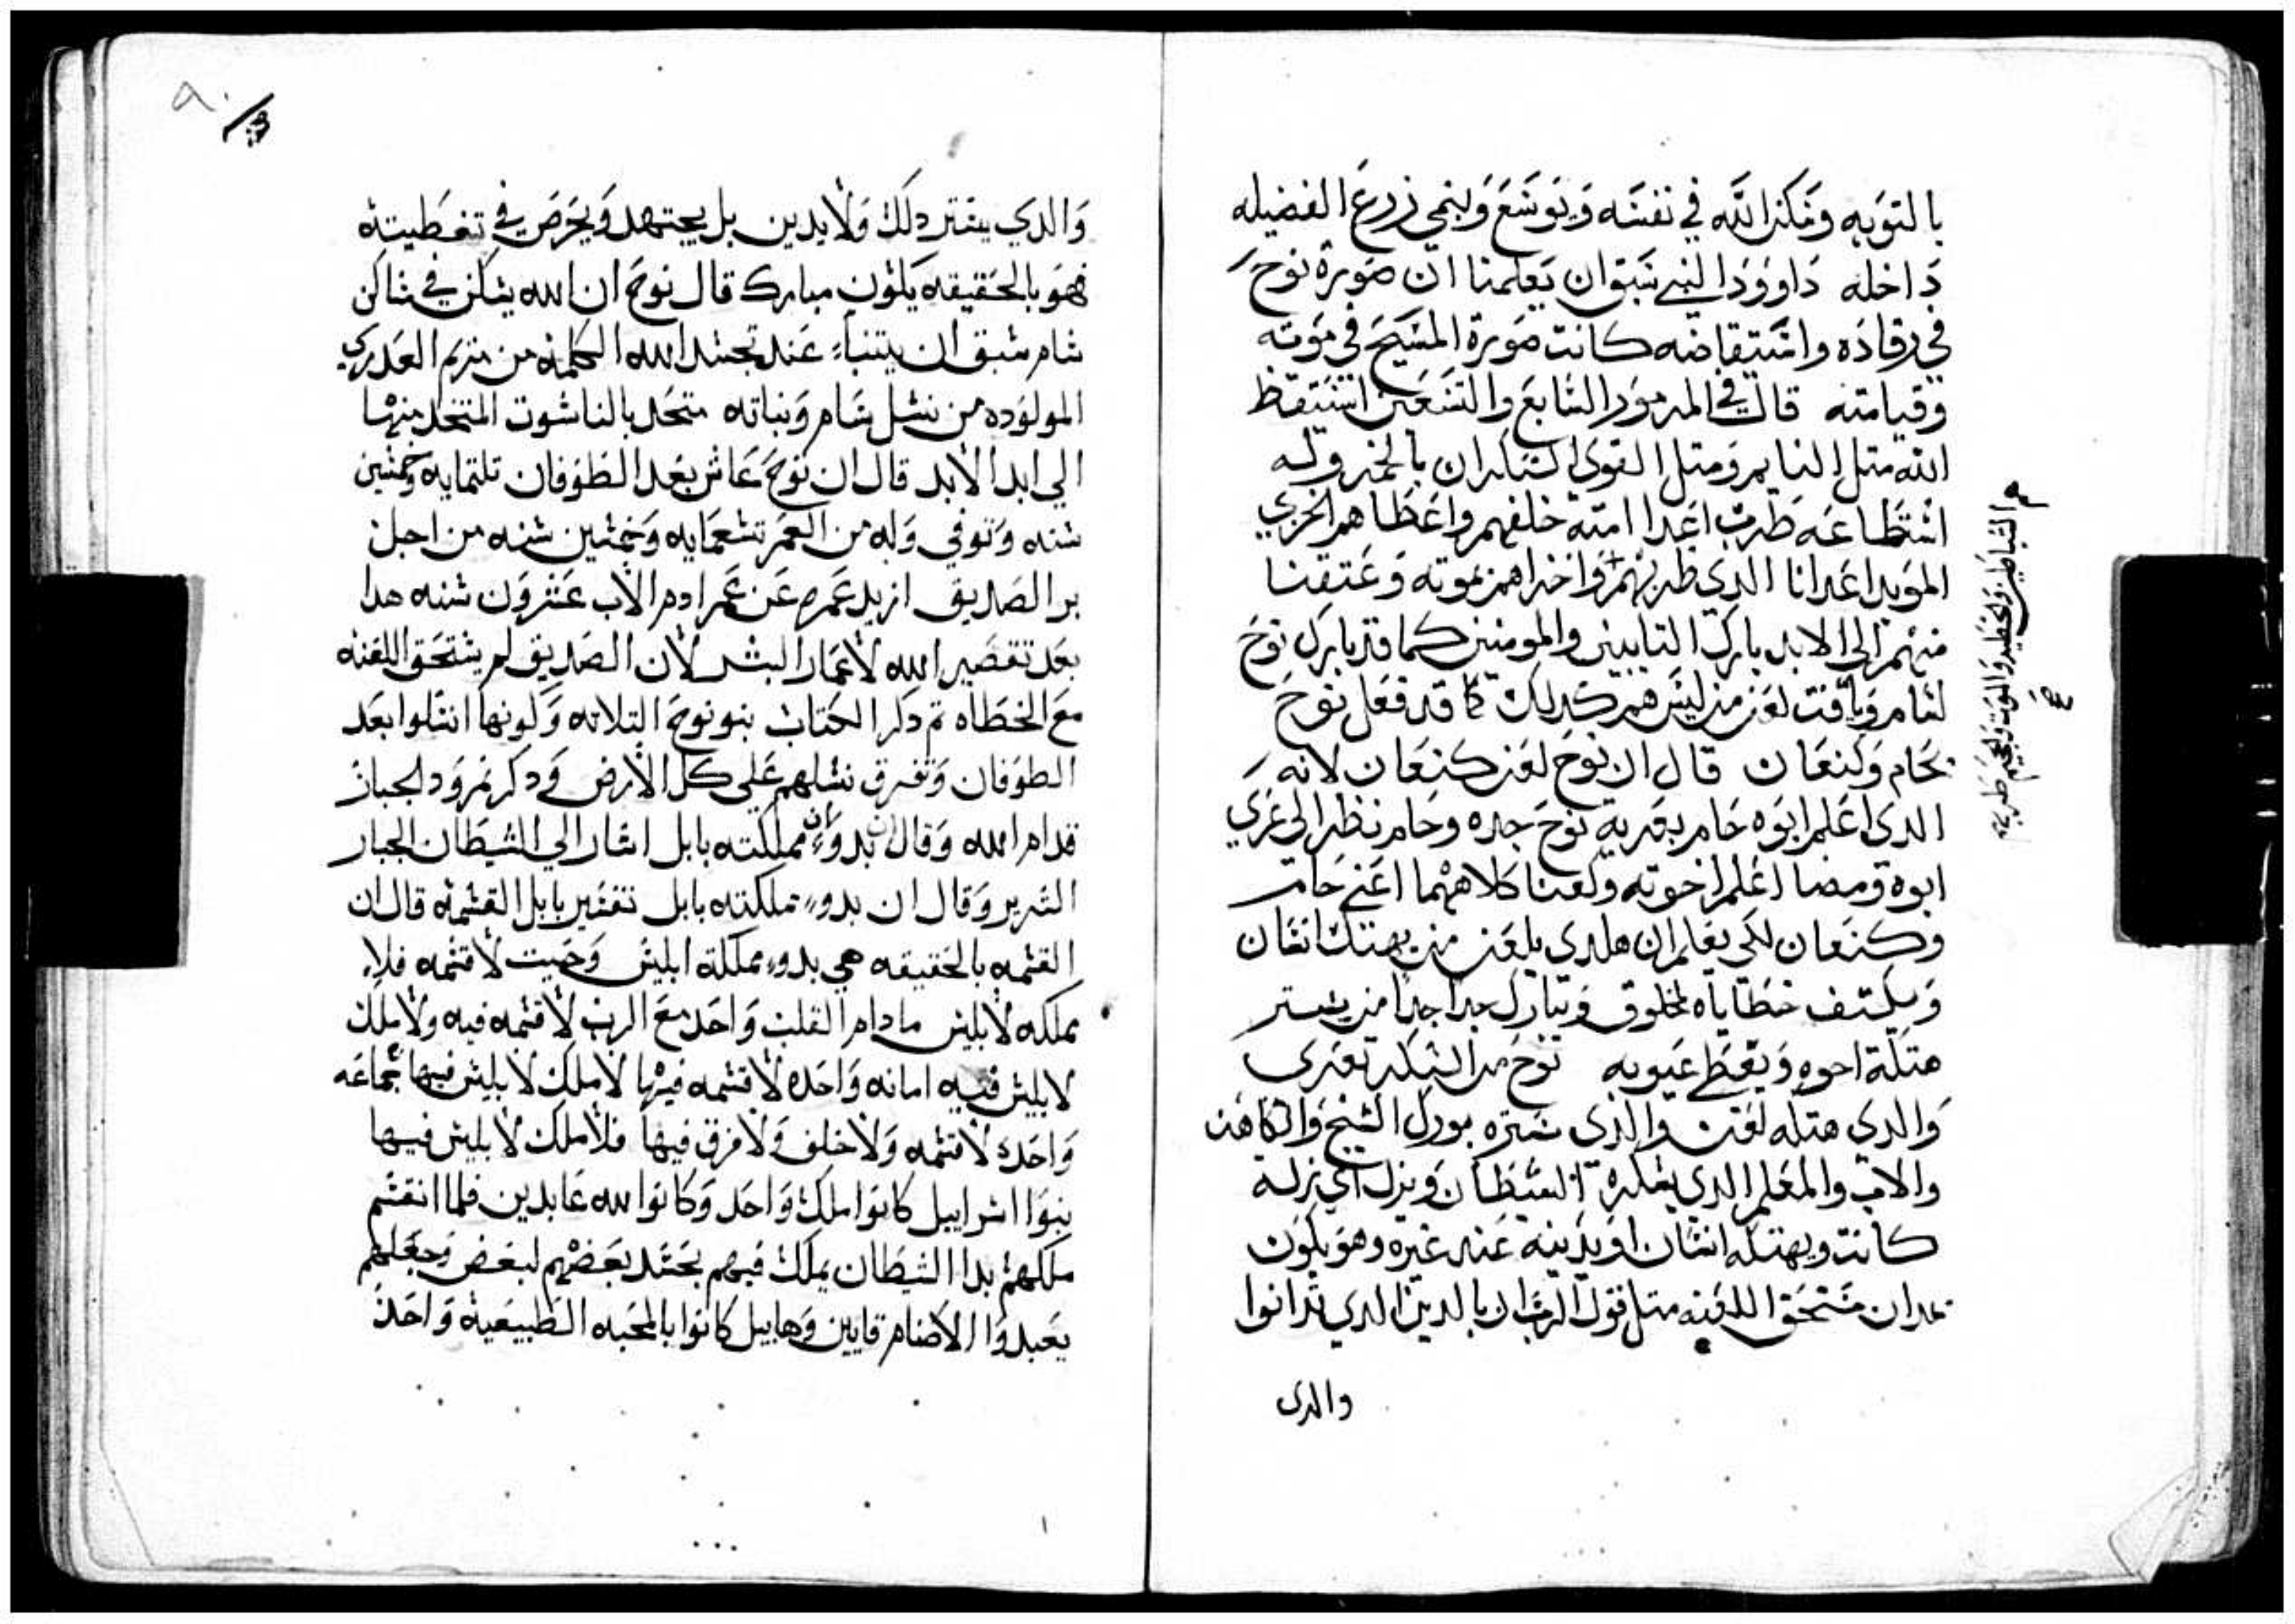 بالتوبه وتكن الله في نفسه ويوسع وينمي زرع الفضيله
داخله داوود النبي سبق ان يعلمنا ان صورة نوح
في رقاده واستيقاضه كانت صورة المسيح في موته
وقيامته قال في المزمور السابع والسبعين استيقظ
الله متل النايم ومتل القوي السكران بالخمر وله
استطاعه ضرب اعدا امته خلفهم واعطاهم الخزي
المويد اعدانا الدي ضربهم واخزاهم بموته وعتقنا
منهم الى الابد بارك التايبين والمومنين كما قد بارك نوح
لسام ويافت لعن من ليس هم كدلك كما قد فعل نوح
بحام وكنعان قال ان نوح لعن كنعان لانه
الدي اعلم ابوه حام بعرية نوح جده وحام نظر الى عري
ابوه ومضا اعلم اخوته ولعنا كلاهما اعني حام
وكنعان لكي يعلم ان هلدي يلعن من يهتك انسان
ويكشف خطاياه لمخلوق ويبارك جدا جدا من يستر
هتكة اخوه ويغطي عيوبه نوح من السكر تعرى
والدي هتكه لعن والدي ستره بورك الشيخ والكاهن
والاب والمعلم الدي يسكره الشيطان ويزل اي زله
كانت ويهتكه انسان او يدينه عند غيره وهو يكون
مدان مستحق اللعنه متل قول الرب ان بالدين الدي تدانوا
والدي
الشياطين والخطيه والموت والجحيم ضربهم
والدي يستر دلك ولا يدين بل يجتهد ويحرص في تغطيته
فهو بالحقيقه يكون مبارك قال نوح ان الله يسكن في مساكن
سام سبق ان يتنبا عند تجسد الله الكلمه من مريم العدري
المولوده من نسل سام ونباته متحد بالناسوت المتخد منها
الي ابد الابد قال ان نوح عاش بعد الطوفان تلتمايه وخمسين
سنه وتوفي وله من العمر تسعمايه وخمسين سنه من اجل
بر الصديق ازيد عمره عن عمر ادم الاب عشرون سنه هدا
بعد تقصير الله لاعمار البشر لان الصديق لم يستحق اللعنه
مع الخطاه تم دكر الكتاب بنو نوح التلاته وكونها انسلوا بعد
الطوفان وتفرق نسلهم على كل الارض ودكر نمرود الجبار
قدام الله وقال ان بدو مملكته بابل اشار الي الشيطان الجبار
الشرير وقال ان بدو مملكته بابل تفسير بابل القسمه قال ان
القسمه بالحقيقه هي بدو مملكة ابليس وحيت لا قسمه فلا
مملكه لابليس ما دام القلب واحد مع الرب لا قسمه فيه ولا ملك
لابليس فيه امانه واحده لا قسمه فيها لا ملك لابليس فيها جماعه
واحده لا قسمه ولا خلف ولا فرق فيها فلا ملك لابليس فيها
بنوا اسراييل كانوا ملك واحد وكانوا لله عابدين فلما انقسم
ملكهم بدا الشيطان يملك فيهم بحسد بعضهم لبعض وجعلهم
يعبدوا الاصنام قايين وهابيل كانوا بالمحبه الطبيعيه واحد